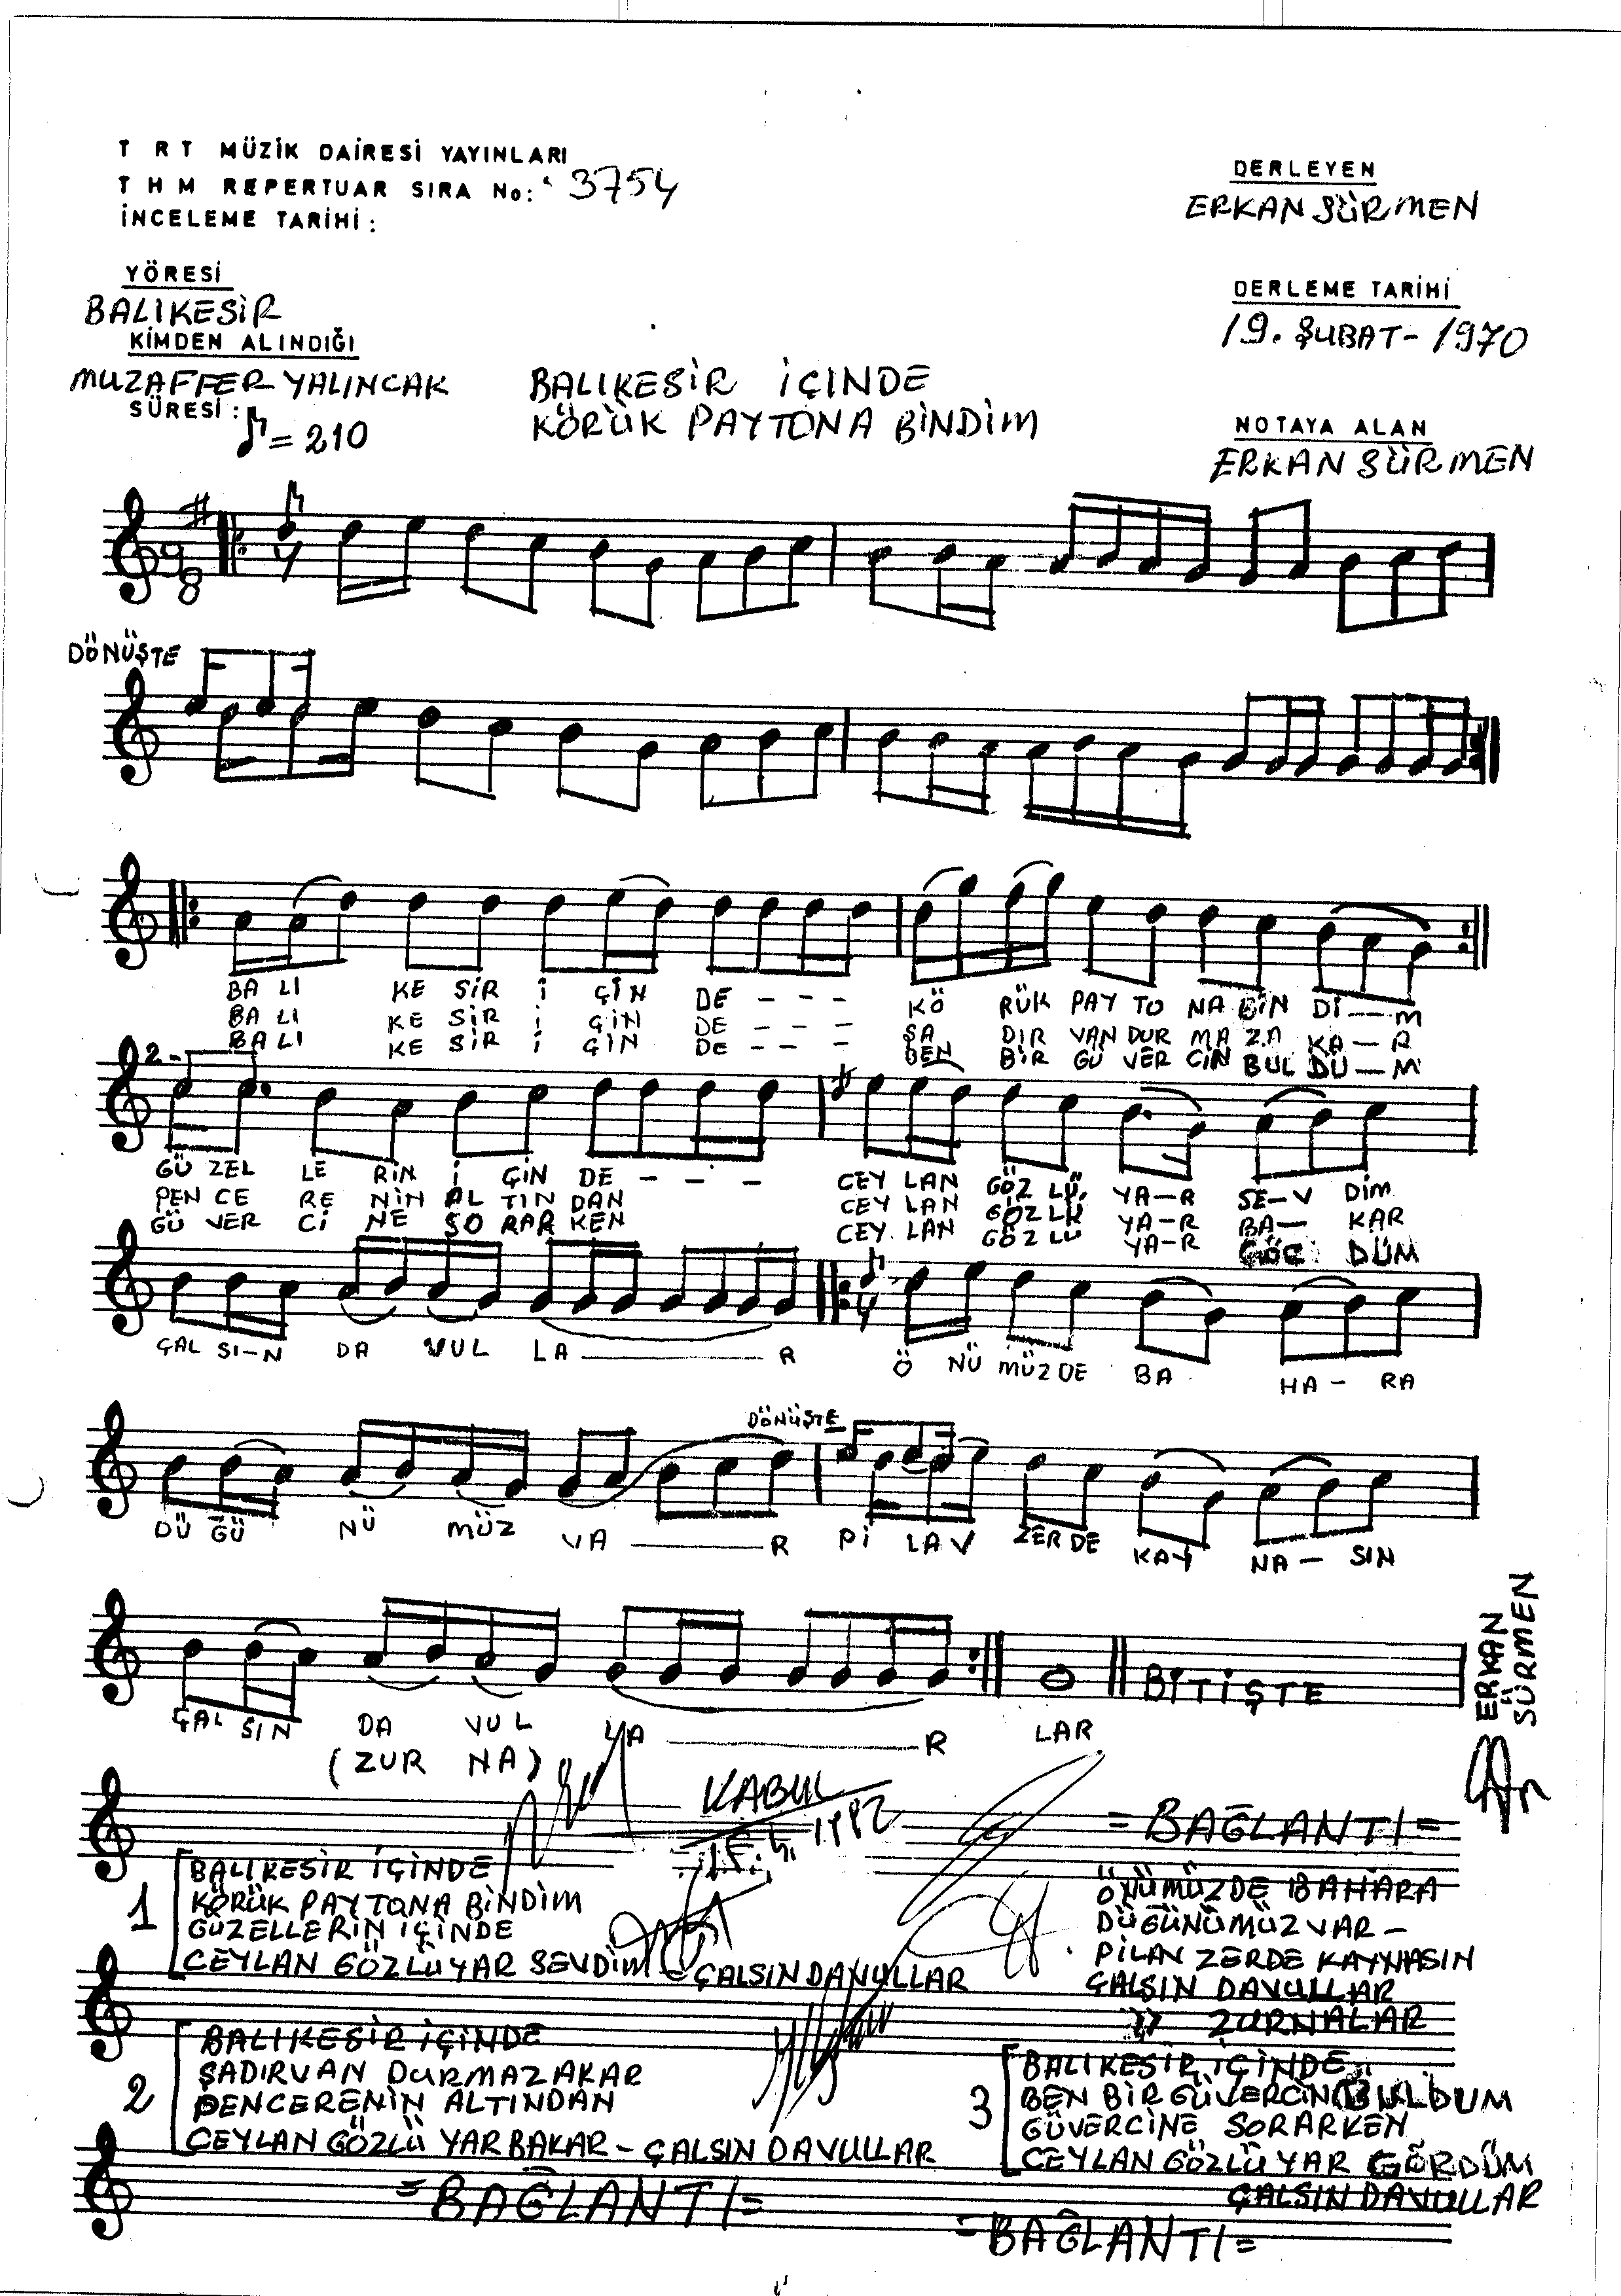 T R T MÜZİK DAİRESİ YAYINLARI
T H M REPERTUAR SIRA No: 3754
İNCELEME TARİHİ :
DERLEYEN
ERKAN SÜRMEN
YÖRESİ
BALIKESİR
DERLEME TARİHİ
19. ŞUBAT - 1970
KİMDEN ALINDIĞI
MUZAFFER YALINCAK
SÜRESİ :
♪ = 210
BALIKESİR İÇİNDE
KÖRÜK PAYTONA BİNDİM
NOTAYA ALAN
ERKAN SÜRMEN
9
8
DÖNÜŞTE
BA LI KE SİR İ ÇİN DE - - - KÖ RÜK PAY TO NA BİN Dİ — M
BA LI KE SİR İ ÇİN DE - - - ŞA DIR VAN DUR MA ZA KA — R
BA LI KE SİR İ ÇİN DE - - - BEN BİR GÜ VER CİN BUL DU — M
2-
GÜ ZEL LE RİN İ ÇİN DE - - - CEY LAN GÖZ LÜ YA-R SE-V DİM
PEN CE RE NİN AL TIN DAN CEY LAN GÖZ LÜ YA-R BA- KAR
GÜ VER Cİ NE SO RAR KEN CEY LAN GÖZ LÜ YA-R GÖR DÜM
ÇAL SI-N DA VUL LA — R Ö NÜ MÜZ DE BA HA - RA
DÖNÜŞTE
DÜ ĞÜ NÜ MÜZ VA — R Pİ LAV ZER DE KAY NA - SIN
ÇAL SIN DA VUL LA — R LAR
(ZUR NA)
BİTİŞTE
ERKAN
SÜRMEN
KABUL
= BAĞLANTI =
1
BALIKESİR İÇİNDE
KÖRÜK PAYTONA BİNDİM
GÜZELLERİN İÇİNDE
CEYLAN GÖZLÜ YAR SEVDİM - ÇALSIN DAVULLAR
ÖNÜMÜZDE BAHARA
DÜĞÜNÜMÜZ VAR -
PİLAV ZERDE KAYNASIN
ÇALSIN DAVULLAR
" ZURNALAR
2
BALIKESİR İÇİNDE
ŞADIRVAN DURMAZ AKAR
PENCERENİN ALTINDAN
CEYLAN GÖZLÜ YAR BAKAR - ÇALSIN DAVULLAR
= BAĞLANTI =
3
BALIKESİR İÇİNDE
BEN BİR GÜVERCİN BULDUM
GÜVERCİNE SORARKEN
CEYLAN GÖZLÜ YAR GÖRDÜM
ÇALSIN DAVULLAR
= BAĞLANTI =